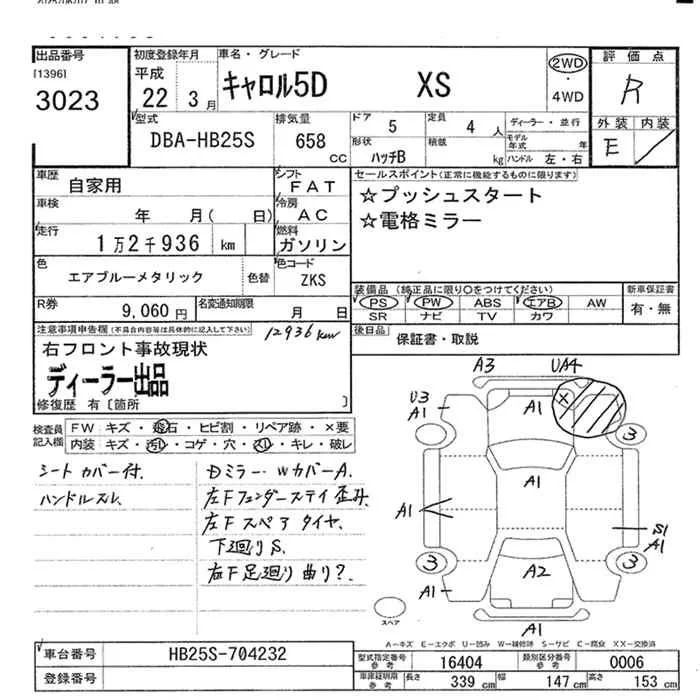 出品番号
[1396]
3023
初度登録年月
平成
22 3月
車名・グレード
キャロル5D XS
2WD
・
4WD
評価点
R
外装 内装
E
型式
DBA-HB25S
排気量
658
CC
ドア
5
定員
4 人
形状
ハッチB
積載
kg
ディーラー・並行
モデル年式 年
ハンドル 左・右
車歴
自家用
シフト
FAT
車検
年 月( 日)
冷房
AC
走行
1万2千936 km
燃料
ガソリン
色
エアブルーメタリック
色替
色コード
ZKS
R券
9,060円
名変通知期限
月 日
セールスポイント(正常に機能するものに限ります)
☆プッシュスタート
☆電格ミラー
装備品 (純正品に限り○をつけてください)
PS PW ABS エアB AW
SR ナビ TV カワ
新車保証書
有・無
後日品
保証書・取説
注意事項申告欄(不具合内容等は具体的に記入して下さい)
12936km
右フロント事故現状
ディーラー出品
修復歴 有〔箇所 〕
検査員記入欄
FW キズ・飛石・ヒビ割・リペア跡・×要
内装 キズ・汚レ・コゲ・穴・スレ・キレ・破レ
シートカバー付.
ハンドルスレ.
Dミラー・WカバーA.
左Fフェンダーステイ歪み
左Fスペアタイヤ.
下廻りS.
右F足廻り曲り?.
A3 UA4
U3
A1
A1
×
3
A1
A1
S1
A1
3
3
A2
A1
A1
スペア
A－キズ E－エクボ U－凹み W－補修跡 S－サビ C－腐食 XX－交換済
車台番号
HB25S-704232
登録番号
型式指定番号
参考
16404
類別区分番号
参考
0006
車庫証明用
参考
長さ
339 cm
幅
147 cm
高さ
153 cm